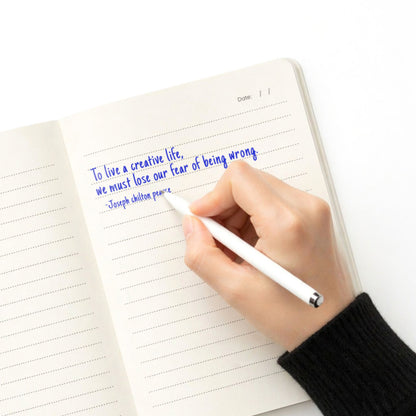 Date: / /
To live a creative life,
we must lose our fear of being wrong.
-Joseph chilton pearce